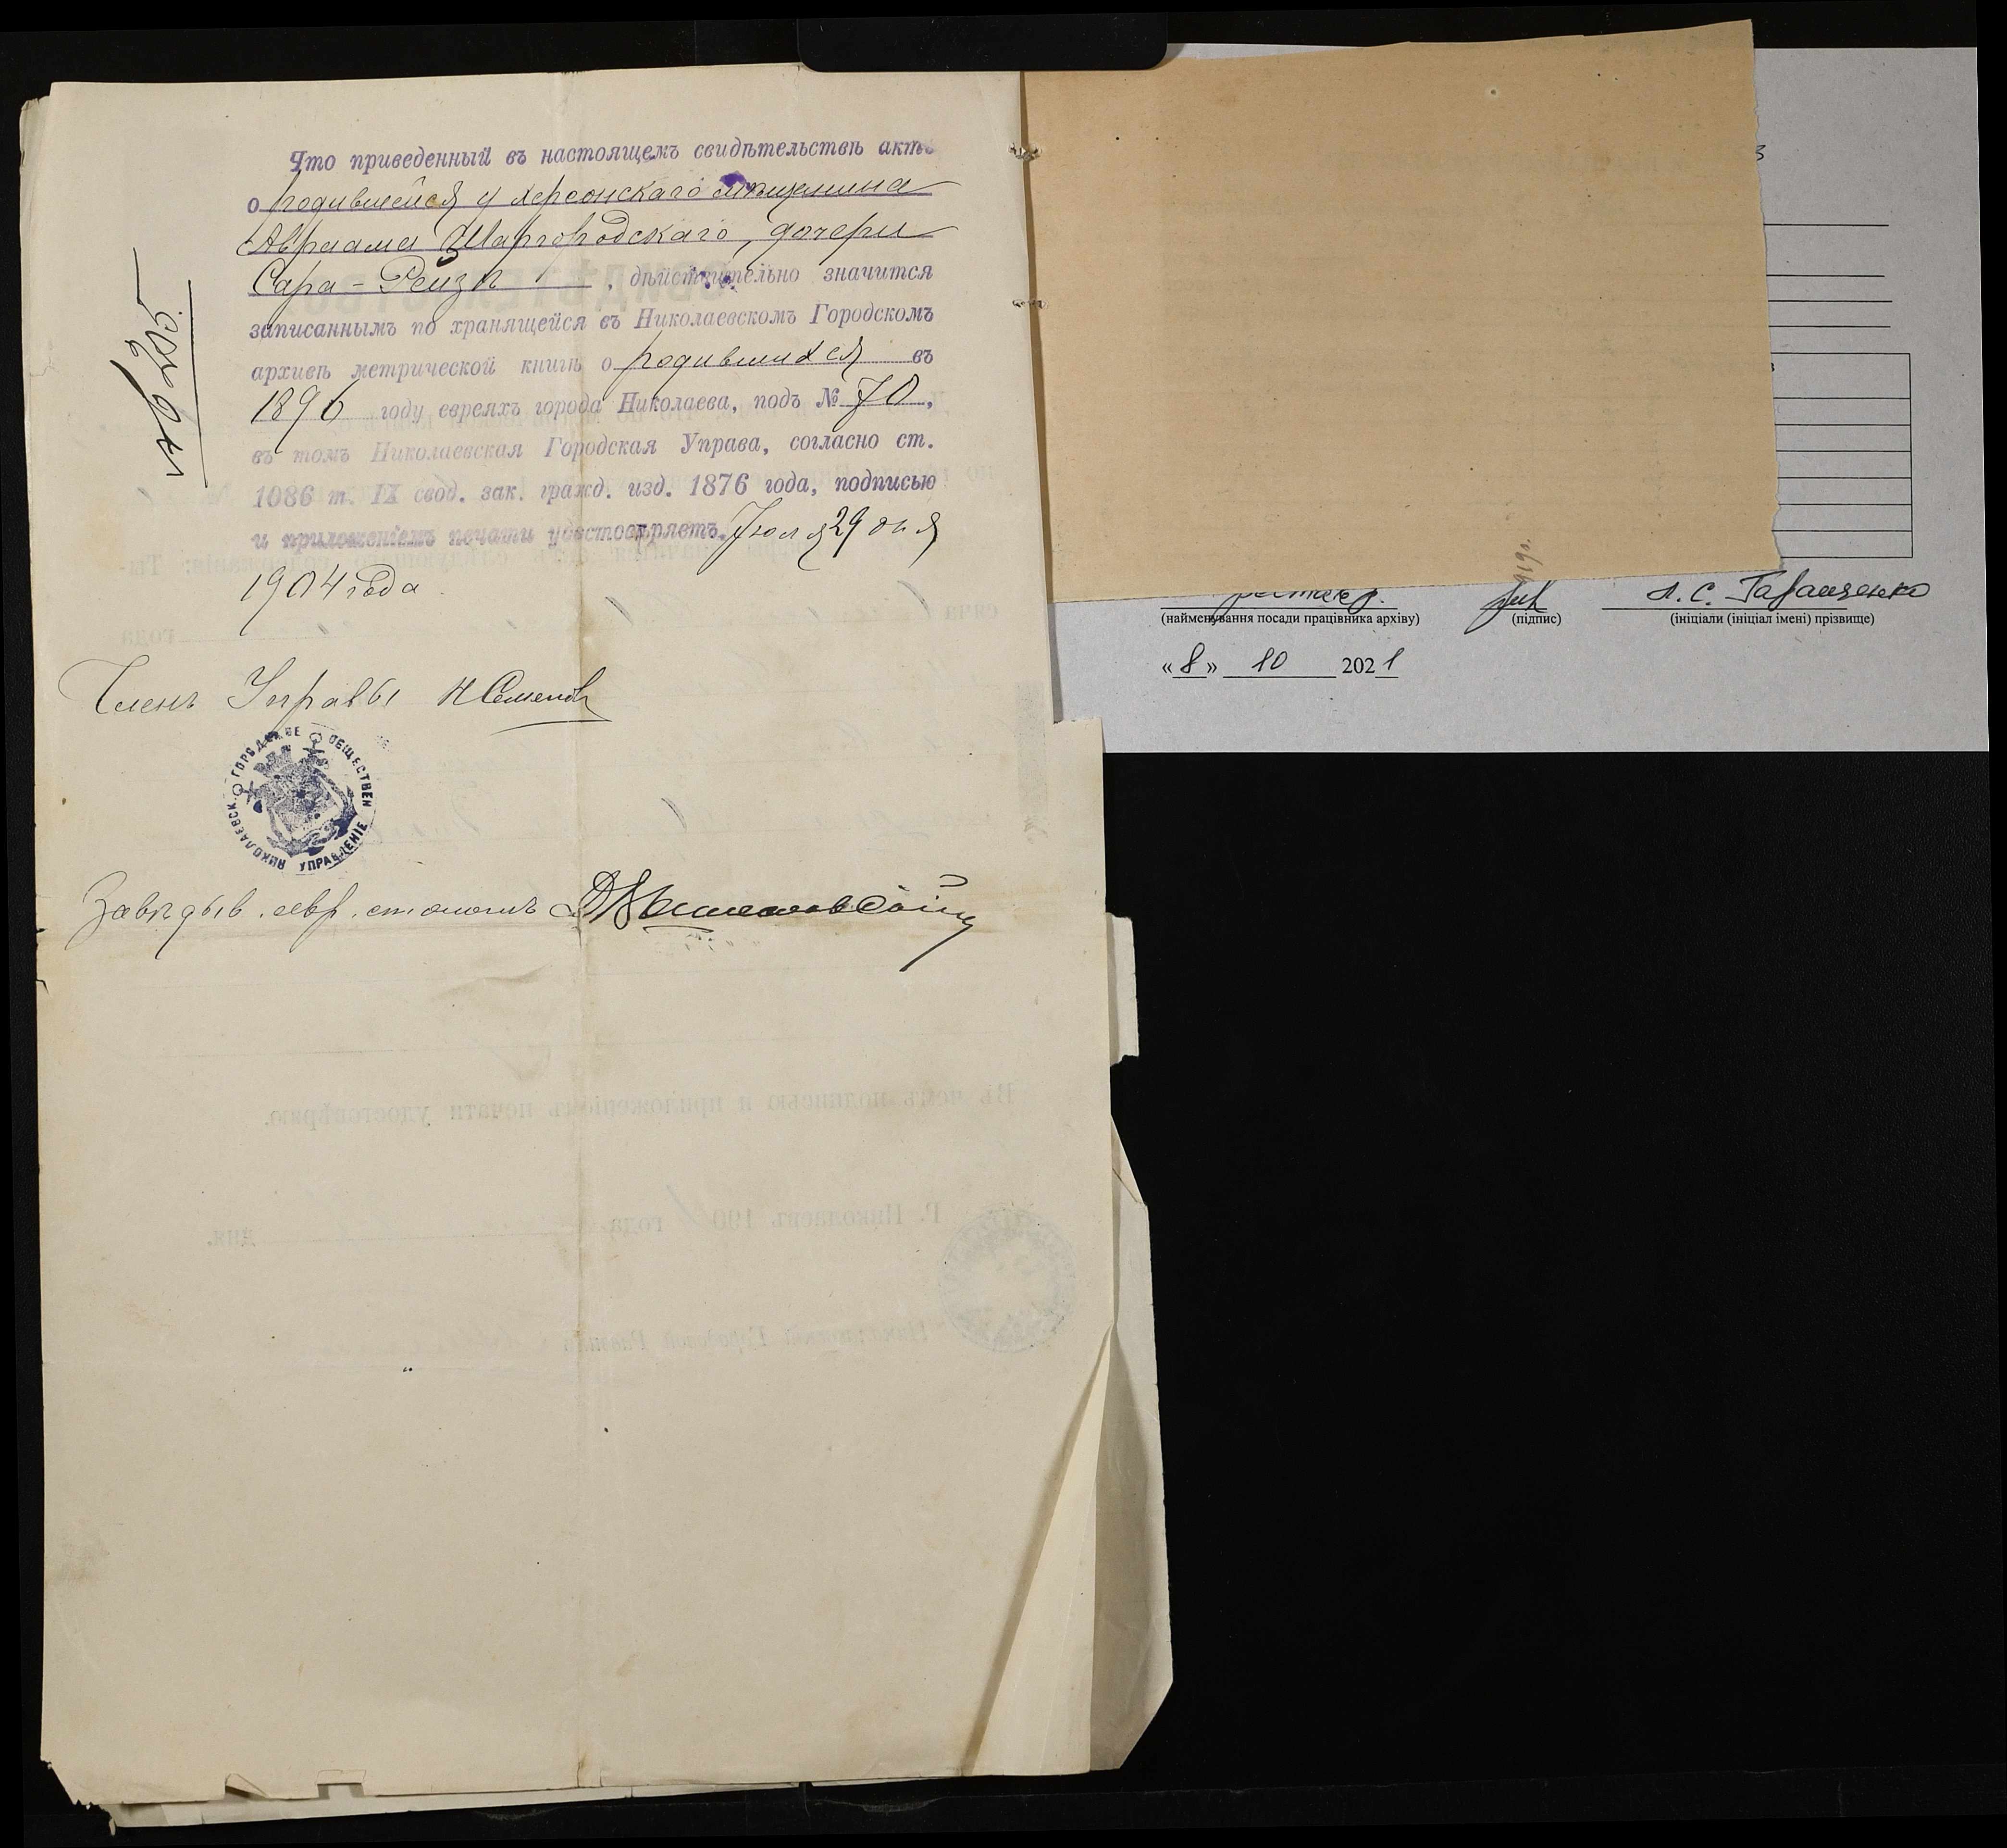 № 205.
Что приведенный въ настоящемъ свидѣтельствѣ актъ
о родившейся у херсонскаго мѣщанина
Авраама Шаргородскаго, дочери
Сара-Рейзѣ, дѣйствительно значится
записаннымъ по хранящейся въ Николаевскомъ Городскомъ
архивѣ метрической книгѣ о родившихся въ
1896 году евреяхъ города Николаева, подъ № 70,
въ томъ Николаевская Городская Управа, согласно ст.
1086 т. IX свод. зак. гражд. изд. 1876 года, подписью
и приложеніемъ печати удостовѣряетъ. Іюля 29 дня
1904 года
Членъ Управы Н Семенов
НИКОЛАЕВСК. ГОРОДСКОЕ ОБЩЕСТВЕН УПРАВЛЕНІЕ
Завѣдыв. евр. столомъ
Въ чемъ подписью и приложеніемъ печати удостовѣряю.
Г. Николаевъ 190 года дня.
Городской Раввинъ
1919г.
А. С. Гаращенко
(найменування посади працівника архіву) (підпис) (ініціали (ініціал імені) прізвище)
«8» 10 2021